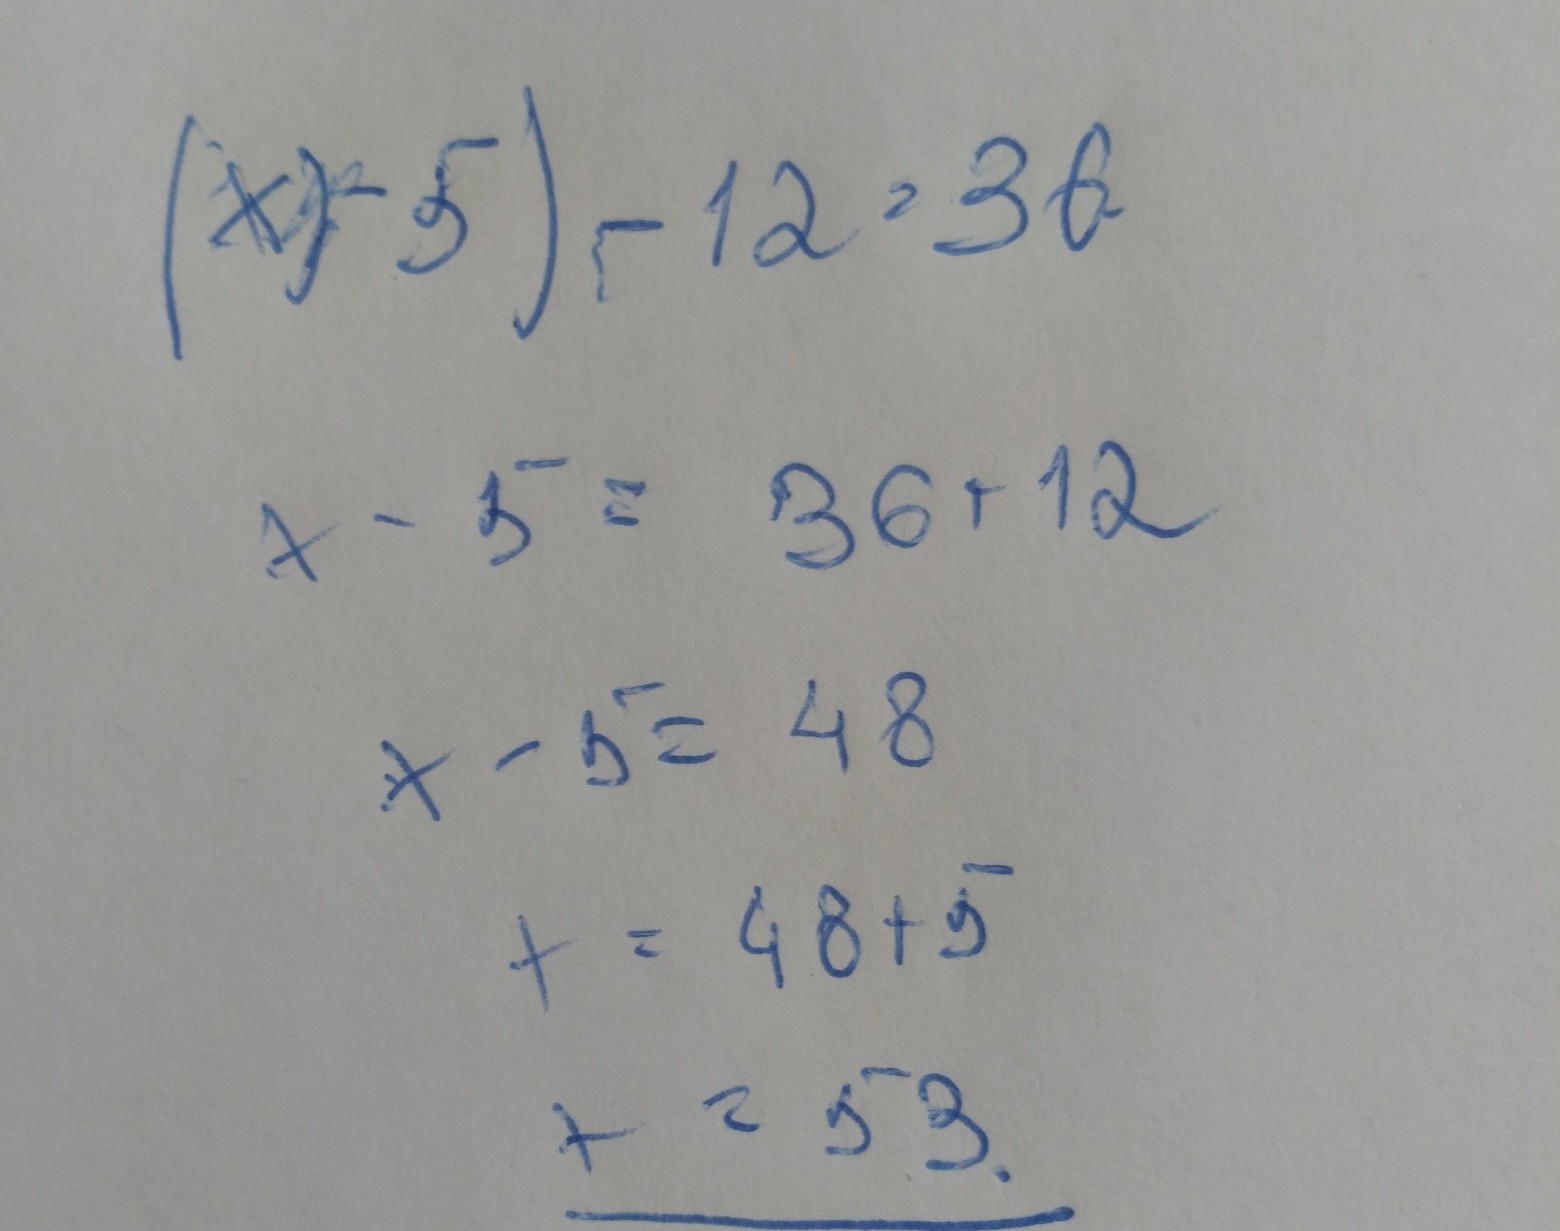 (x - 5) - 12 = 36
x - 5 = 36 + 12
x - 5 = 48
x = 48 + 5
x = 53.